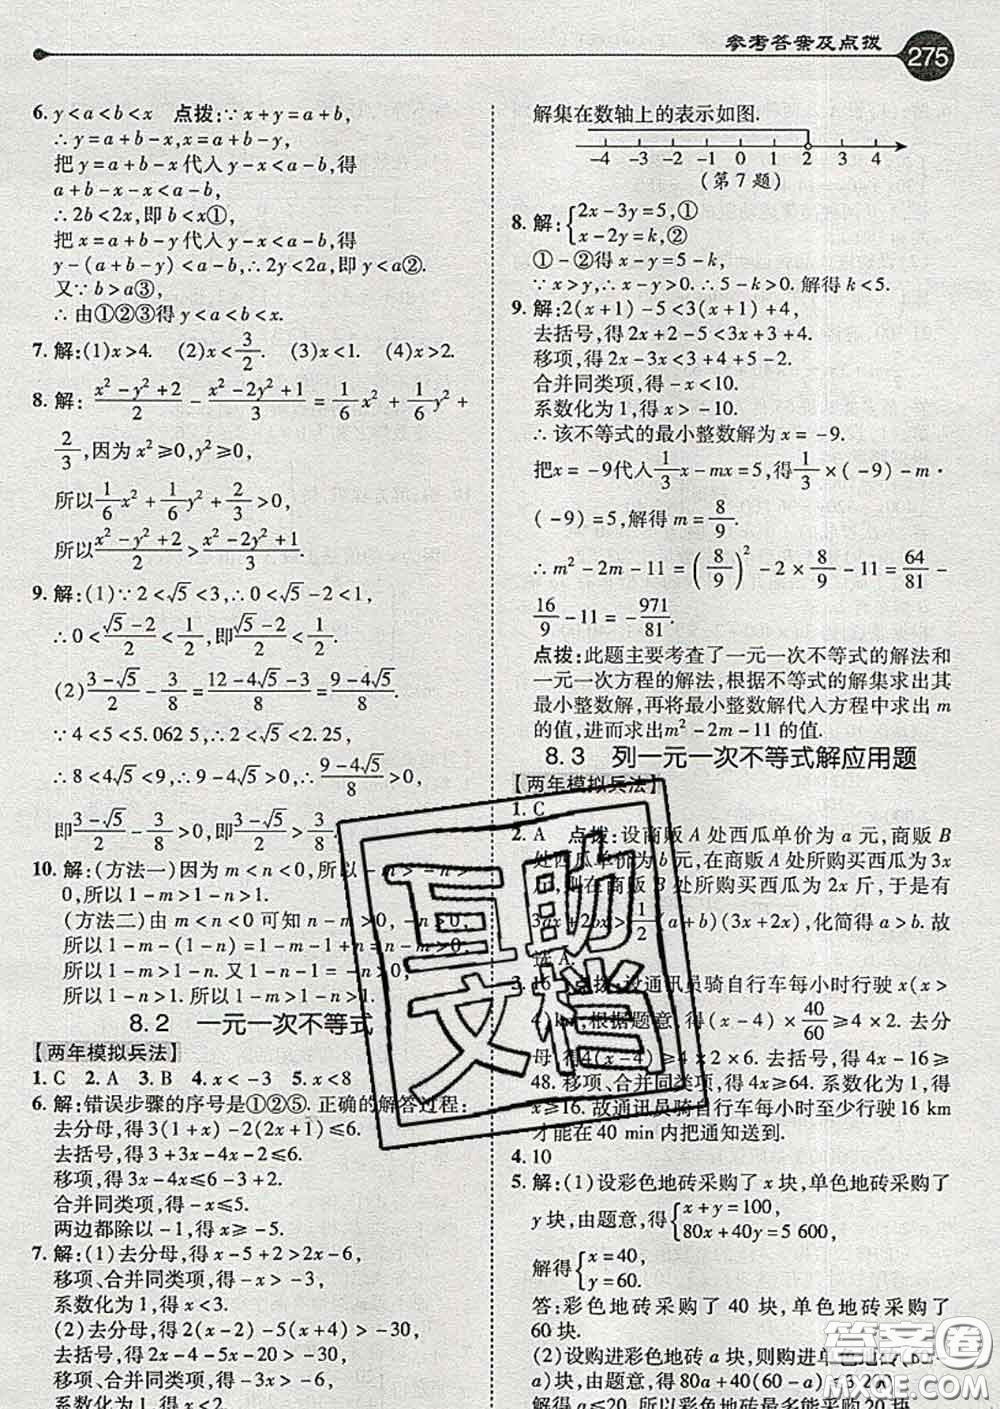 参考答案及点拨 275
6. y<a<b<x 点拨:∵x+y=a+b,
∴y=a+b-x,x=a+b-y,
把 y=a+b-x 代入 y-x<a-b,得
a+b-x-x<a-b,
∴2b<2x,即 b<x①,
把 x=a+b-y 代入 y-x<a-b,得
y-(a+b-y)<a-b,∴2y<2a,即 y<a②.
又∵b>a③,
∴由①②③得 y<a<b<x.
7. 解:(1)x>4. (2)x<3/2. (3)x<1. (4)x>2.
8. 解: (x²-y²+2)/2 - (x²-2y²+1)/3 = 1/6 x² + 1/6 y² +
2/3,因为 x²≥0,y²≥0,
所以 1/6 x² + 1/6 y² + 2/3 >0,
所以 (x²-y²+2)/2 > (x²-2y²+1)/3.
9. 解:(1)∵2<√5<3,∴0<√5-2<1,
∴0<(√5-2)/2<1/2,即(√5-2)/2<1/2.
(2)(3-√5)/2 - 3/8 = (12-4√5-3)/8 = (9-4√5)/8.
∵4<5<5.062 5,
∴8<4√5<9,∴(9-4√5)/8>0,
即(3-√5)/2 - 3/8>0,即(3-√5)/2>3/8.
10. 解:(方法一)因为 m<n<0,所以-m>-n>
0,所以 1-m>1-n>1.
(方法二)由 m<n<0 可知 n-m>0,-n>0,
所以 1-m-(1-n)=1-m-1+n=n-m>0,
所以 1-m>1-n. 又 1-n-1=-n>0,
所以 1-n>1. 所以 1-m>1-n>1.
8.2 一元一次不等式
【两年模拟兵法】
1. C 2. A 3. B 4. x<-3 5. x<8
6. 解:错误步骤的序号是①②⑤. 正确的解答过程:
去分母,得 3(1+x)-2(2x+1)≤6.
去括号,得 3+3x-4x-2≤6.
移项,得 3x-4x≤6-3+2.
合并同类项,得-x≤5.
两边都除以-1,得 x≥-5.
7. 解:(1)去分母,得 x-5+2>2x-6,
移项、合并同类项,得-x>-3,
系数化为 1,得 x<3.
(2)去分母,得 2(x-2)-5(x+4)>-30,
去括号,得 2x-4-5x-20>-30,
移项、合并同类项,得-3x>-6,
系数化为 1,得 x<2.
解集在数轴上的表示如图.
-4 -3 -2 -1 0 1 2 3 4
(第 7 题)
8. 解:{2x-3y=5,①
x-2y=k,②
①-②得 x-y=5-k,
∵x>y,∴x-y>0. ∴5-k>0. 解得 k<5.
9. 解:2(x+1)-5<3(x+1)+4,
去括号,得 2x+2-5<3x+3+4.
移项,得 2x-3x<3+4+5-2.
合并同类项,得-x<10.
系数化为 1,得 x>-10.
∴该不等式的最小整数解为 x=-9.
把x=-9代入 1/3 x-mx=5,得 1/3×(-9)-m·
(-9)=5,解得 m=8/9.
∴m²-2m-11=(8/9)²-2×8/9-11=64/81-
16/9-11=-971/81.
点拨:此题主要考查了一元一次不等式的解法和
一元一次方程的解法,根据不等式的解集求出其
最小整数解,再将最小整数解代入方程中求出 m
的值,进而求出m²-2m-11的值.
8.3 列一元一次不等式解应用题
【两年模拟兵法】
1. C
2. A 点拨:设商贩 A 处西瓜单价为 a 元,商贩 B
处西瓜单价为 b 元,在商贩 A 处所购买西瓜为 3x
斤,则在商贩 B 处所购买西瓜为 2x 斤,于是有
3ax+2bx>1/2(a+b)(3x+2x),化简得 a>b. 故
选 A.
3. 16 点拨:设通讯员骑自行车每小时行驶 x(x>
4) km,根据题意,得(x-4)×40/60≥4×2. 去分
母,得4(x-4)≥4×2×6. 去括号,得 4x-16≥
48. 移项、合并同类项,得 4x≥64. 系数化为 1,得
x≥16. 故通讯员骑自行车每小时至少行驶 16 km
才能在 40 min内把通知送到.
4. 10
5. 解:(1)设彩色地砖采购了 x 块,单色地砖采购了
y 块,由题意,得{x+y=100,
80x+40y=5 600,
解得{x=40,
y=60.
答:彩色地砖采购了 40 块,单色地砖采购了
60 块.
(2)设购进彩色地砖 a 块,则购进单色地砖(60-
a)块,由题意,得 80a+40(60-a)≤3 200,
解得 a≤20. 所以彩色地砖最多能采购 20 块.
互助
文档
答案圈
MXQE.COM